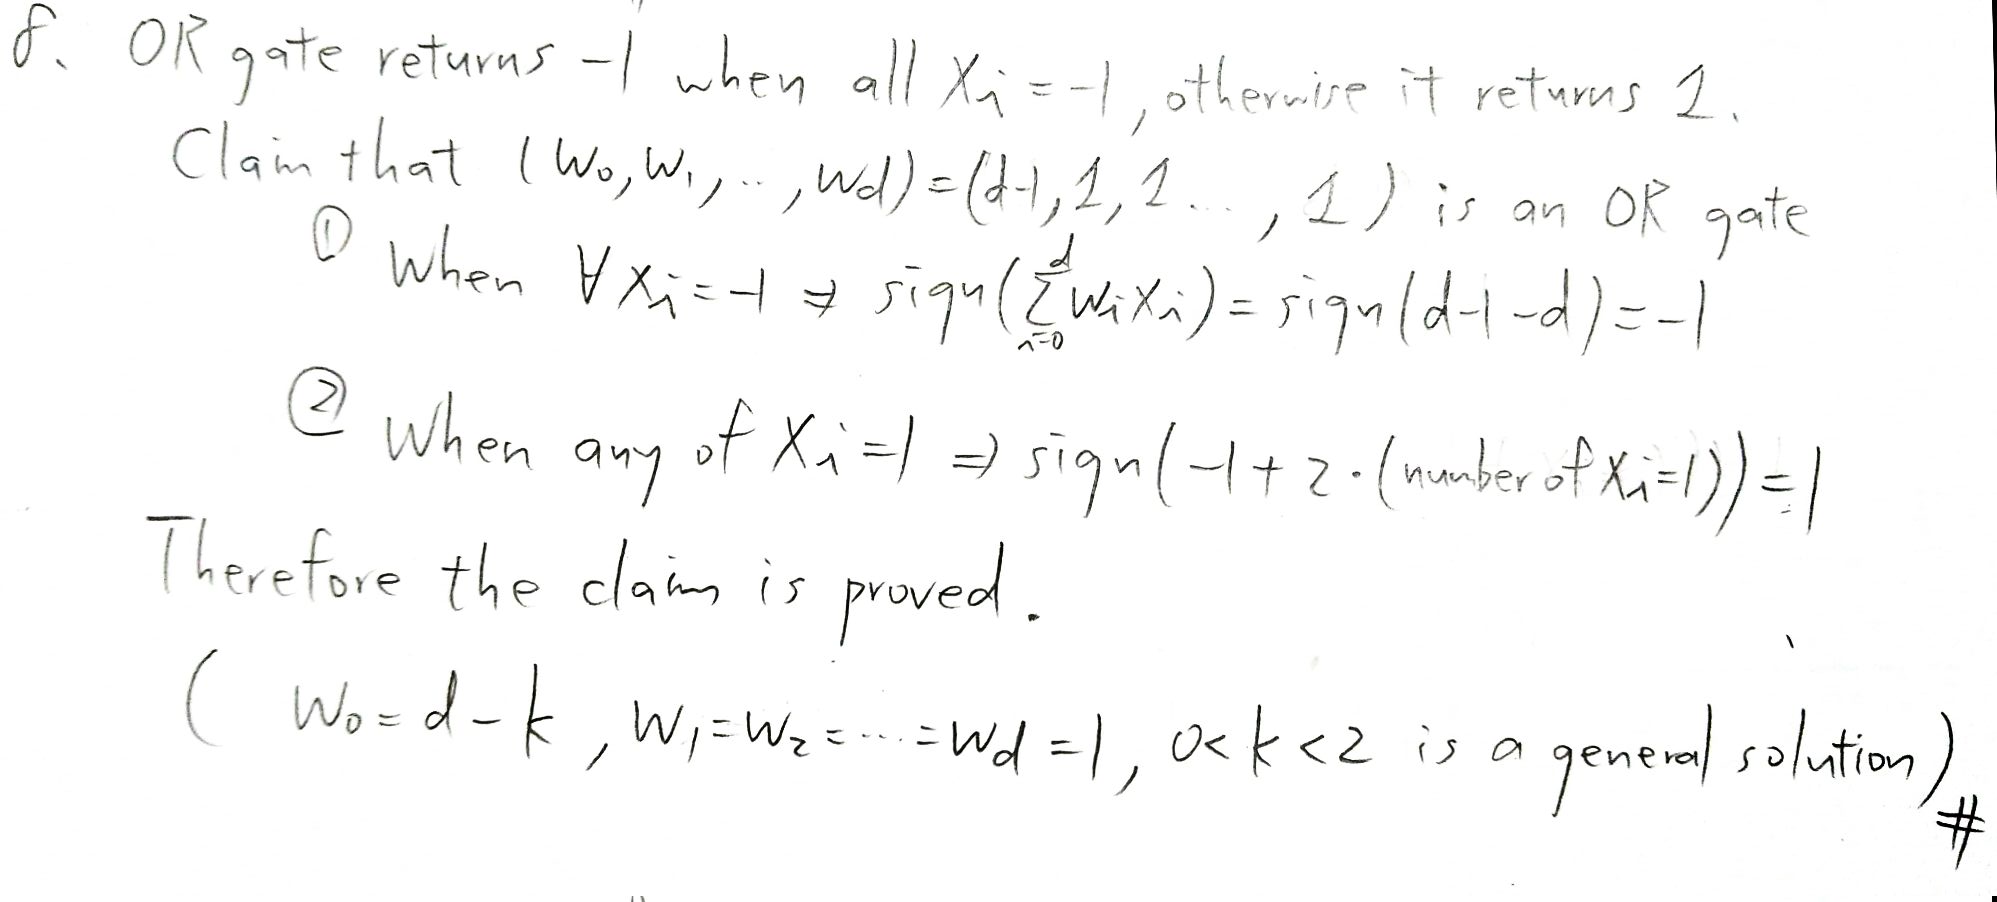 8. OR gate returns -1 when all Xi = -1, otherwise it returns 1.
Claim that (W0, W1, ..., Wd) = (d-1, 1, 1 ..., 1) is an OR gate
① When ∀ Xi = -1 ⇒ sign(∑_{i=0}^{d} WiXi) = sign(d-1-d) = -1
② When any of Xi = 1 ⇒ sign(-1 + 2·(number of Xi=1)) = 1
Therefore the claim is proved.
( W0 = d - k, W1 = W2 = ... = Wd = 1, 0 < k < 2 is a general solution) #